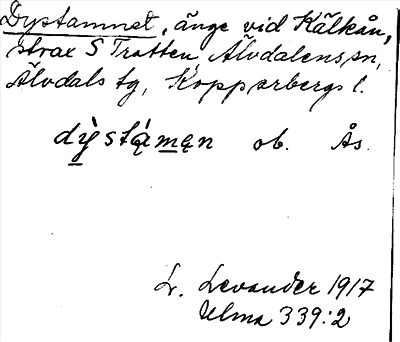 Dystamnet, änge vid Kälkån,
strax S Trotten Älvdalens sn,
Älvdals tg, Kopparbergs l.
dỳ̠stą́m̠ąn ob. Ås.
L. Levander 1917
Ulma 339:2